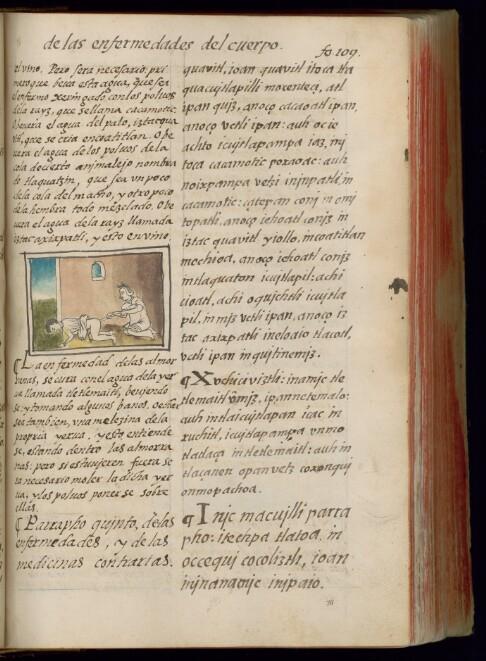 de las enfermedades del cuerpo.
fo. 109.
el vino. Pero sera necesario, pri
mero que beva esta agua, que sea
el enfermo xeringado con los poluos
de la rayz, que se llama cacamotic.
O beuera el agua del palo, iztacqua
vitl, que se cria en coatitlan. O be
uera el agua de los poluos de la
cola de cierto animalejo nombra
do tlaquatzin, que sea vn poco
de la cola del macho, y otro poco
de la hembra todo mezclado. O be
uera el agua de la rayz llamada
iztac axixpatli, y esto en vino.
¶ La enfermedad de las almor
ranas, se cura con el agua de la yer
ua llamada tletlemaitl, beuiendo
se: y tomando algunos baños. Echese
sea tambien, vna melezina de la
propria yerua. y esto entiende
se, estando dentro las almorra
nas: pero si estuuieren fuera se
ra necesario moler la dicha yer
ua, y los poluos ponerse sobre
ellas.
¶ Parrapho quinto, de las
enfermedades, y de las
medicinas contrarias.
quavitl, ioan quavitl itoca tla
quacujtlapilli moxenteca, atl
ipan qujz, anoço cacaoatl ipan,
anoço vctli ipan: auh oc ie
achto icujtlapampa iaz, inj
toca cacamotic poxaoac: auh
noixpampa vetzi injnpatli, in
cacamotic: çatepan conj in onj
topatli, anoço iehoatl conjz in
iztac quavitl yiollo, in coatitlan
mochioa, anoço iehoatl conjz
in tlaquaton icujtlapil: achi
cioatl, achi oqujchtli icujtla
pil, in mjz vctli ipan, anoço iz
tac axixpatli inelhoaio tlacotl,
vctli ipan in quitinemjz.
¶ Xochiciviztli: inamic tle
tlemaitl omjz, ipan netemalo:
auh intlaicujtlapan icac in
xuchitl, icujtlapampa vnmo
tlatlaça in tletlemaitl: auh in
tlaçanen opan vetz coxonquj
onmopachoa.
¶ Injc macujlli parra
pho: itechpa tlatoa, in
occequi cocoliztli, ioan
injnanamjc injpaio.